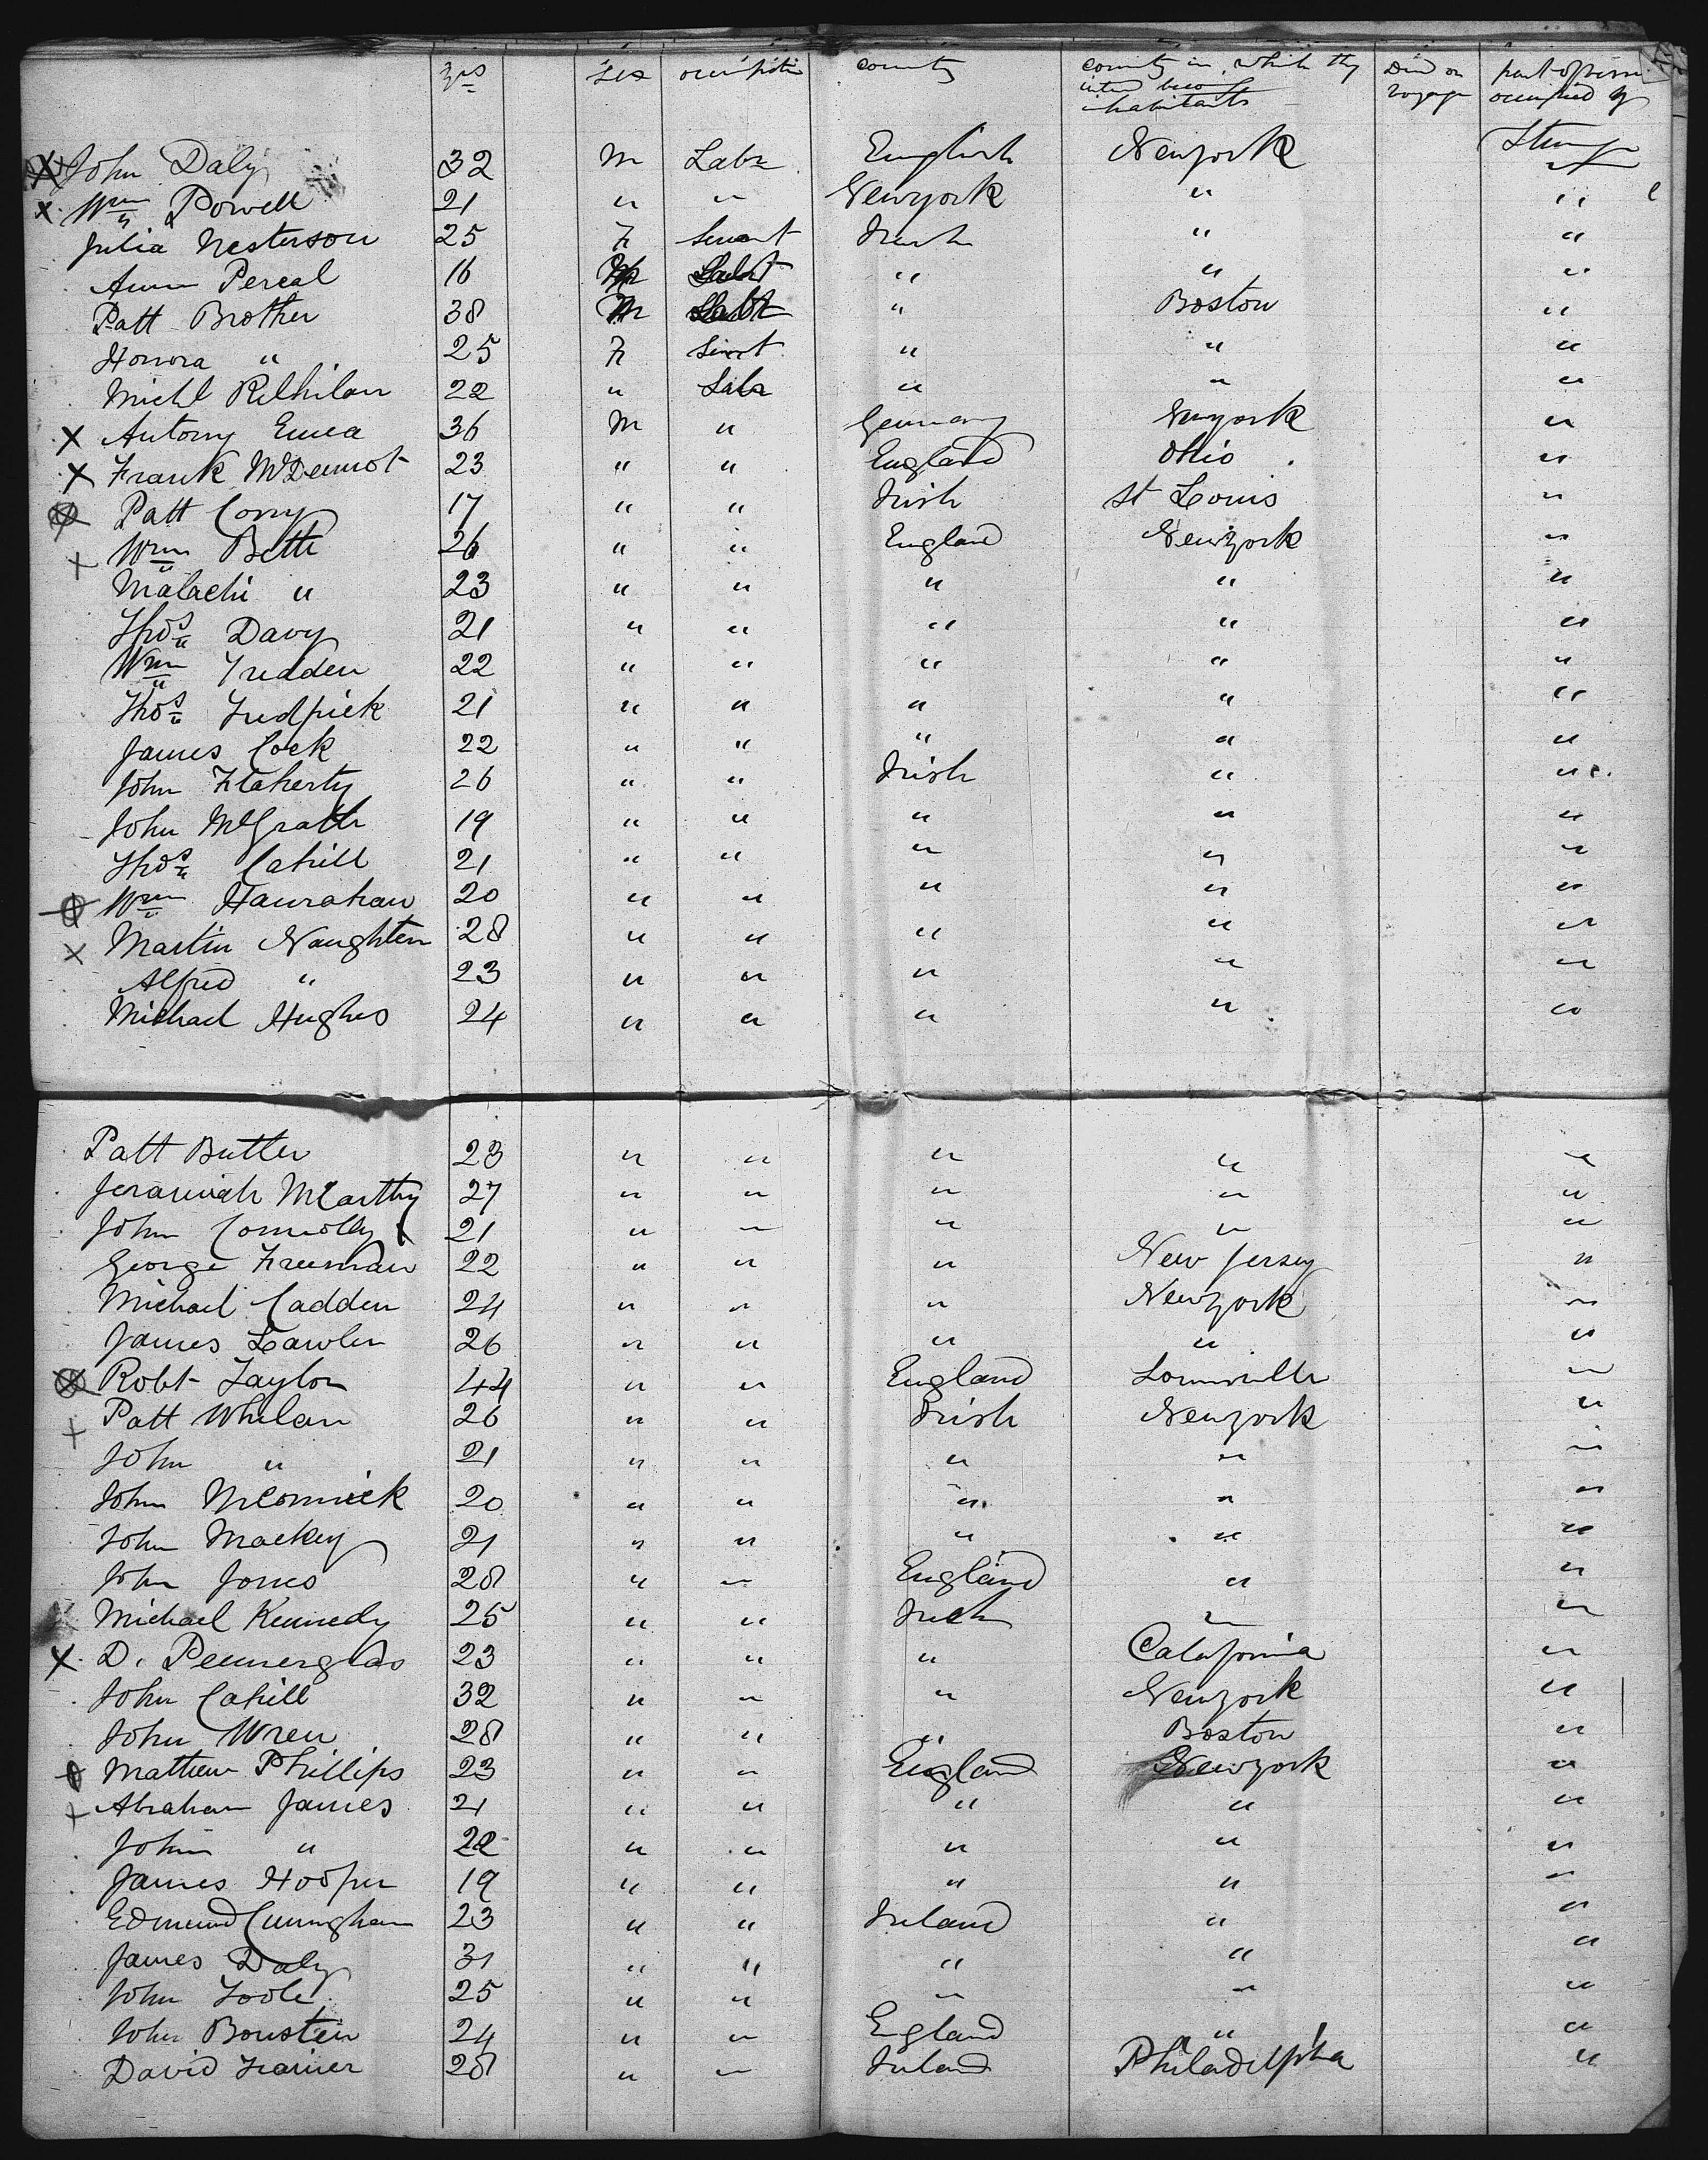 yrs Sex occupation country country in which they Died on part of vessel
intend become voyage occupied by
inhabitants
X John Daly 32 m Labr English Newyork Steerage
X Wm Powell 21 " " Newyork " "
Julia Nesterson 25 F Servant Irish " "
Ann Pereal 16 " " "
Patt Brother 38 M Labr " Boston "
Honora " 25 F Servt " " "
Michl 22 " Labr " " "
X Antony 36 m " Germany Newyork "
X Frank McDermot 23 " " England Ohio "
Patt Cony 17 " " Irish St Louis "
Wm Bette 26 " " England Newyork "
Malachi " 23 " " " " "
Thos Davy 21 " " " " "
Wm Tredden 22 " " " " "
Thos 21 " " " " "
James Cock 22 " " " " "
John Flaherty 26 " " Irish " "
John McGrath 19 " " " " "
Thos Cahill 21 " " " " "
Wm Hanrahan 20 " " " " "
X Martin Naughten 28 " " " " "
Alfred " 23 " " " " "
Michael Hughes 24 " " " " "
Patt Butler 23 " " " " "
Jeramiah McCarthy 27 " " " " "
John Connolly 21 " " " " "
George Freeman 22 " " " New Jersey "
Michael Cadden 24 " " " Newyork "
James Lawler 26 " " " " "
Robt Taylor 44 " " England Louisville "
Patt Whelan 26 " " Irish Newyork "
John " 21 " " " " "
John McCormick 20 " " " " "
John Mackey 21 " " " " "
John Jones 28 " " England " "
Michael Kennedy 25 " " Irish " "
X D. Pennerglas 23 " " " Calafornia "
John Cahill 32 " " " Newyork "
John Wren 28 " " " Boston "
Mathew Phillips 23 " " England Newyork "
Abraham James 21 " " " " "
John " 22 " " " " "
James Hooper 19 " " " " "
Edmund Cunningham 23 " " Ireland " "
James Daly 31 " " " " "
John Toole 25 " " " " "
John Bousten 24 " " England " "
David 28 " " Ireland Philadelphia "